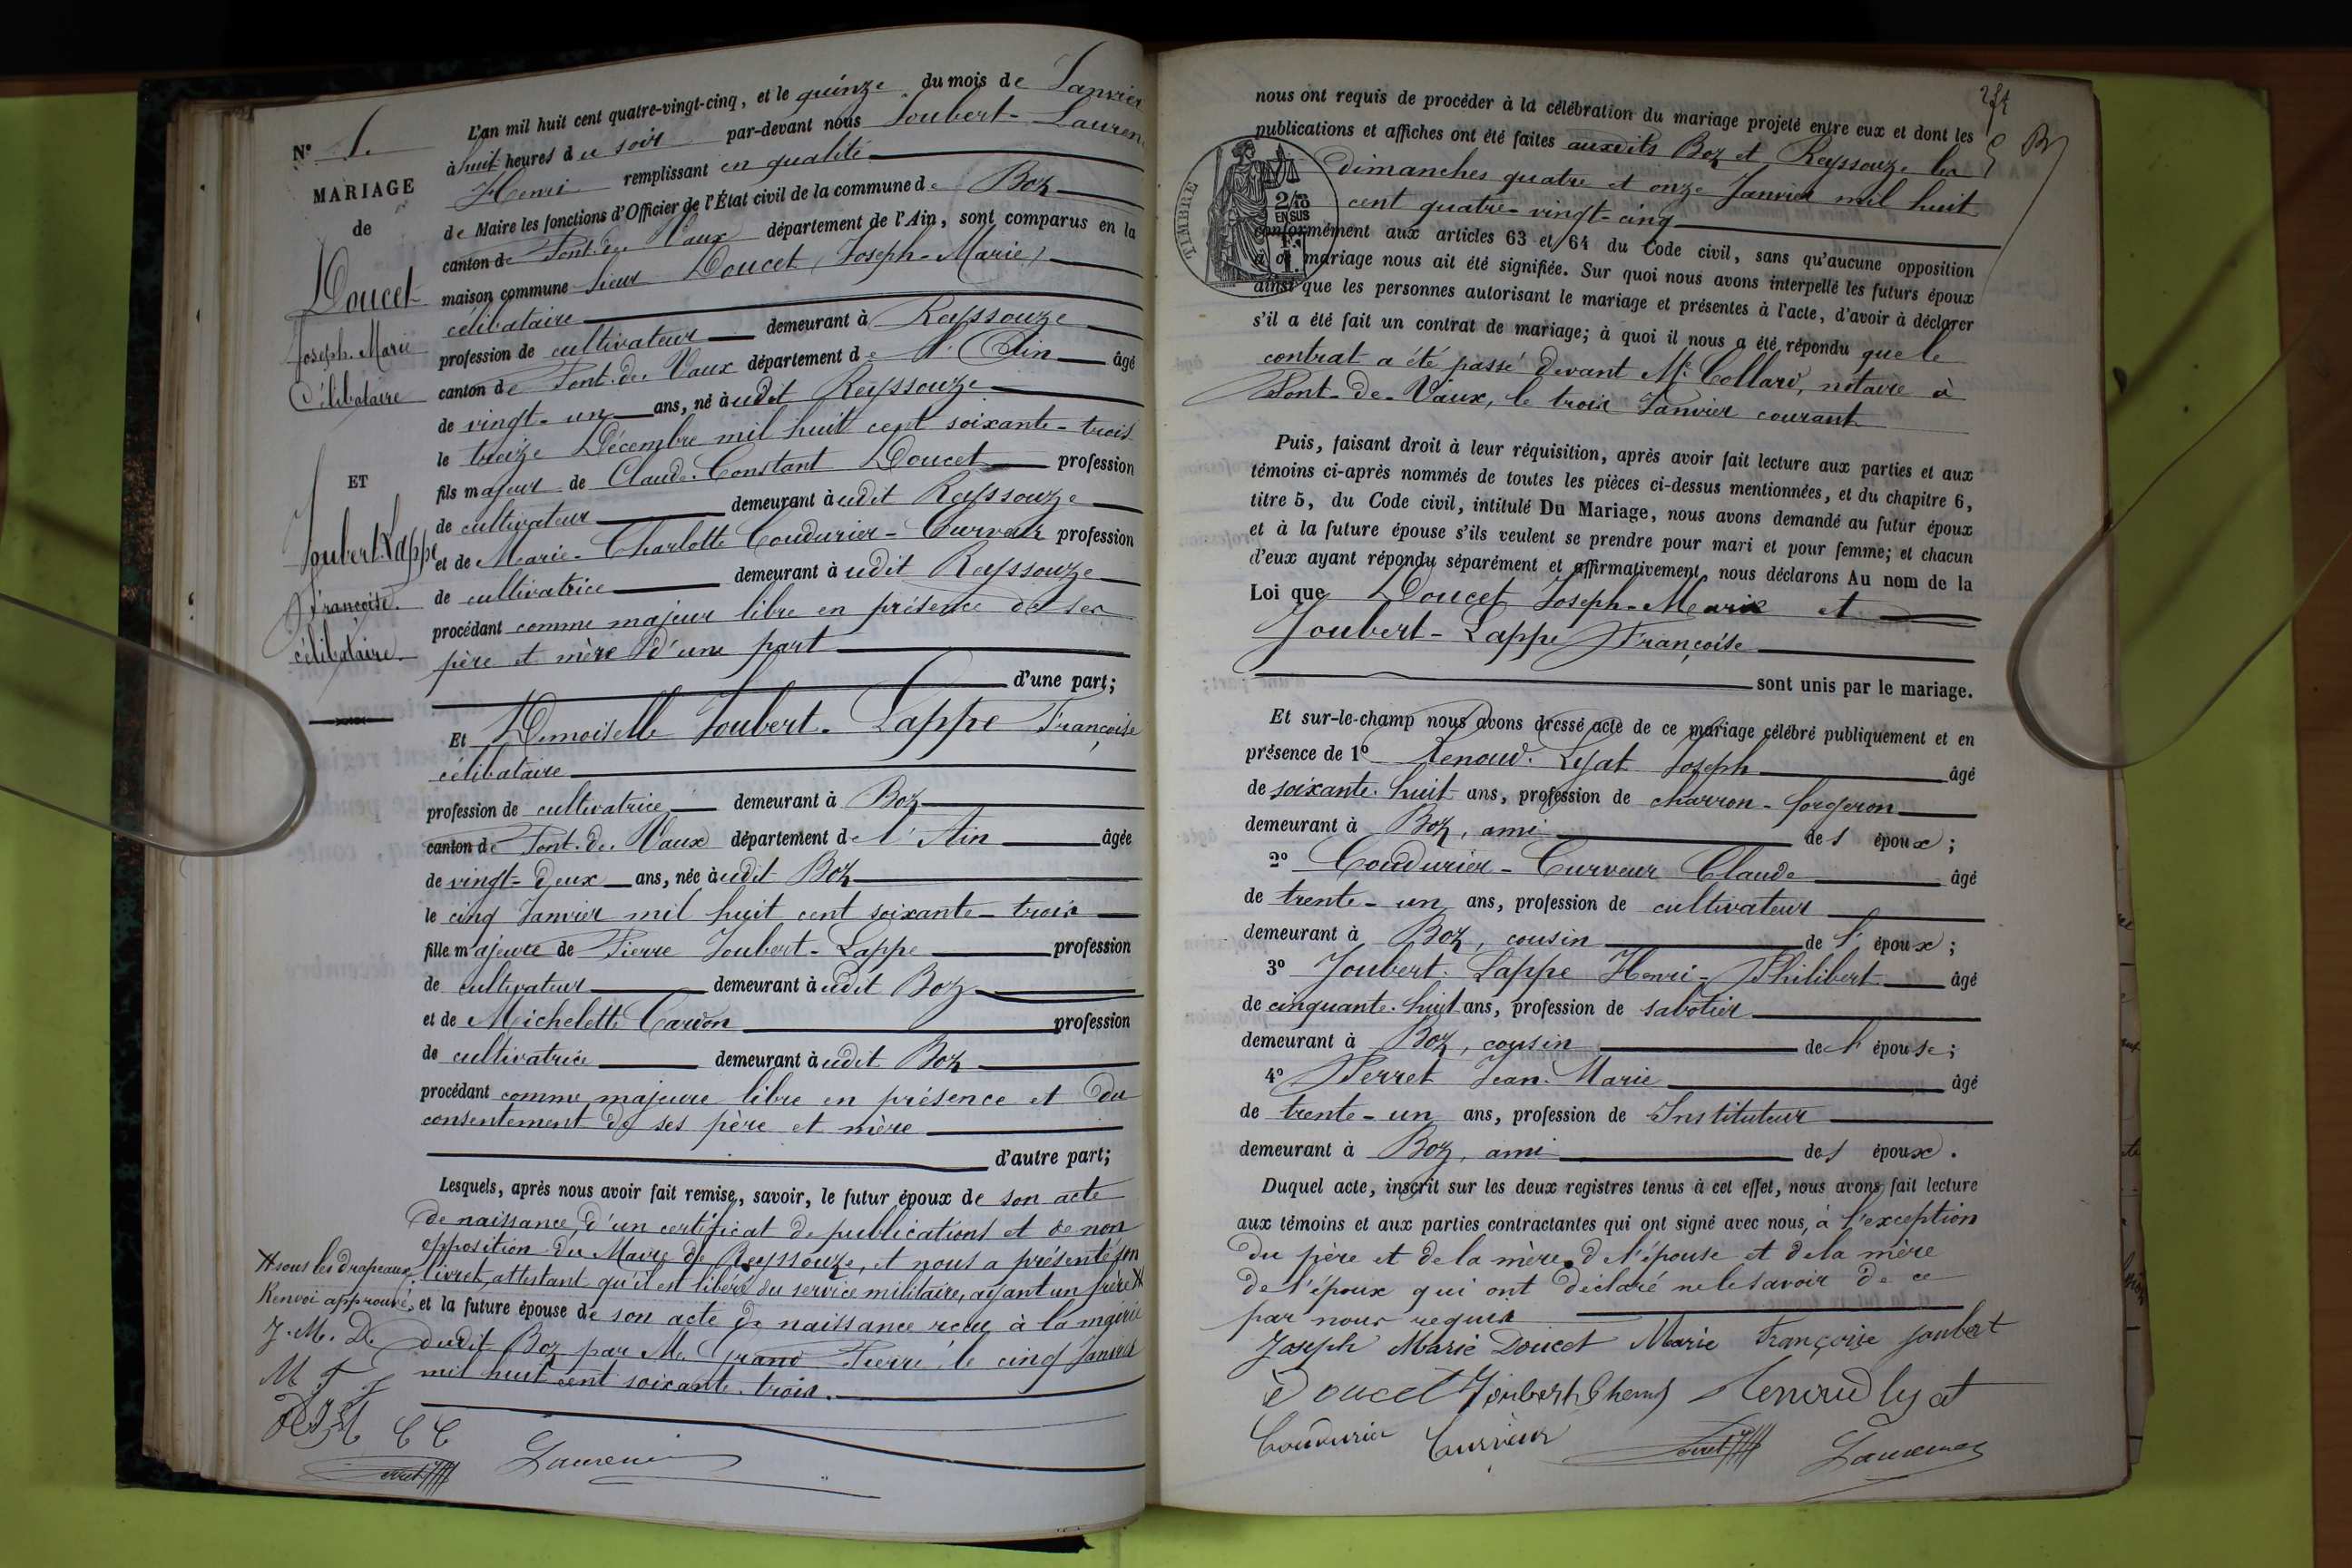 N° 1.
MARIAGE
de
Doucet
Joseph-Marie
Célibataire
ET
Joubert-Lappe
Françoise.
célibataire.
L'an mil huit cent quatre-vingt-cinq, et le quinze du mois de Janvier
à huit heures du soir par-devant nous Joubert-Lauren
Henri remplissant en qualité
de Maire les fonctions d'Officier de l'État civil de la commune de Boz
canton de Pont-de-Vaux département de l'Ain, sont comparus en la
maison commune Sieur Doucet (Joseph-Marie)
célibataire
profession de cultivateur demeurant à Reyssouze
canton de Pont-de-Vaux département de l'Ain âgé
de vingt-un ans, né àudit Reyssouze
le treize Décembre mil huit cent soixante-trois
fils majeur de Claude-Constant Doucet profession
de cultivateur demeurant àudit Reyssouze
et de Marie-Charlotte Coudurier-Curveur profession
de cultivatrice demeurant àudit Reyssouze
procédant comme majeur libre en présence de ses
père et mère d'une part
d'une part;
Et Demoiselle Joubert-Lappe Françoise
célibataire
profession de cultivatrice demeurant à Boz
canton de Pont-de-Vaux département de l'Ain âgée
de vingt-deux ans, née àudit Boz
le cinq Janvier mil huit cent soixante-trois
fille majeure de Pierre Joubert-Lappe profession
de cultivateur demeurant àudit Boz
et de Michelette Cardon profession
de cultivatrice demeurant àudit Boz
procédant comme majeure libre en présence et du
consentement de ses père et mère
d'autre part;
Lesquels, après nous avoir fait remise, savoir, le futur époux de son acte
de naissance, d'un certificat de publications et de non
opposition du Maire de Reyssouze, et nous a présenté son
livret, attestant qu'il est libéré du service militaire, ayant un frère #
et la future épouse de son acte de naissance reçu à la mairie
dudit Boz par Me Grand Pierre le cinq Janvier
mil huit cent soixante-trois.
# sous les drapeaux.
Renvoi approuvé.
J. M. D.
M F J
C C
Perret
Laurencin
nous ont requis de procéder à la célébration du mariage projeté entre eux et dont les
publications et affiches ont été faites auxdits Boz et Reyssouze les
dimanches quatre et onze Janvier mil huit
cent quatre-vingt-cinq
TIMBRE
2/10
EN SUS
conformément aux articles 63 et 64 du Code civil, sans qu'aucune opposition
à ce mariage nous ait été signifiée. Sur quoi nous avons interpellé les futurs époux
ainsi que les personnes autorisant le mariage et présentes à l'acte, d'avoir à déclarer
s'il a été fait un contrat de mariage; à quoi il nous a été répondu que le
contrat a été passé devant Me Collard, notaire à
Pont-de-Vaux, le trois Janvier courant
Puis, faisant droit à leur réquisition, après avoir fait lecture aux parties et aux
témoins ci-après nommés de toutes les pièces ci-dessus mentionnées, et du chapitre 6,
titre 5, du Code civil, intitulé Du Mariage, nous avons demandé au futur époux
et à la future épouse s'ils veulent se prendre pour mari et pour femme; et chacun
d'eux ayant répondu séparément et affirmativement, nous déclarons Au nom de la
Loi que Doucet Joseph-Marie et
Joubert-Lappe Françoise
sont unis par le mariage.
Et sur-le-champ nous avons dressé acte de ce mariage célébré publiquement et en
présence de 1° Renoud-Lyat Joseph âgé
de soixante-huit ans, profession de charron-forgeron
demeurant à Boz, ami des époux;
2° Coudurier-Curveur Claude âgé
de trente-un ans, profession de cultivateur
demeurant à Boz, cousin de l'époux;
3° Joubert-Lappe Henri-Philibert âgé
de cinquante-huit ans, profession de sabotier
demeurant à Boz, cousin de l'épouse;
4° Perret Jean-Marie âgé
de trente-un ans, profession de Instituteur
demeurant à Boz, ami des époux.
Duquel acte, inscrit sur les deux registres tenus à cet effet, nous avons fait lecture
aux témoins et aux parties contractantes qui ont signé avec nous, à l'exception
du père et de la mère de l'épouse et de la mère
de l'époux qui ont déclaré ne le savoir de ce
par nous requis
Joseph Marie Doucet Marie Françoise Joubert
Doucet Joubert Renoud lyat
Coudurier Curveur Perret Laurencin